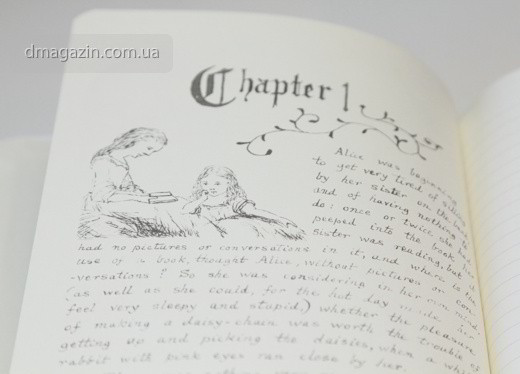 dmagazin.com.ua
Chapter 1
Alice was beginning
to get very tired of sitting
by her sister on the bank,
and of having nothing to
do: once or twice she had
peeped into the book her
sister was reading, but it
had no pictures or conversations in it, and where is the
use of a book, thought Alice, without pictures or con-
versations? So she was considering in her own mind,
(as well as she could, for the hot day made her
feel very sleepy and stupid,) whether the pleasure
of making a daisy-chain was worth the trouble of
getting up and picking the daisies, when a white
rabbit with pink eyes ran close by her.